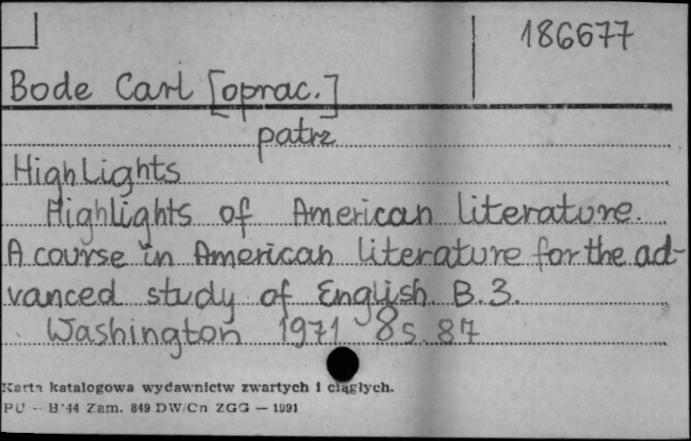 186677
Bode Carl [oprac.]
patrz
Highlights
Highlights of American literature.
A course in American literature for the ad-
vanced study of English B.3.
Washington 1971 8 s. 87
Karta katalogowa wydawnictw zwartych i ciągłych.
PU - B'44 Zam. 849 DW/Cn ZGG — 1991